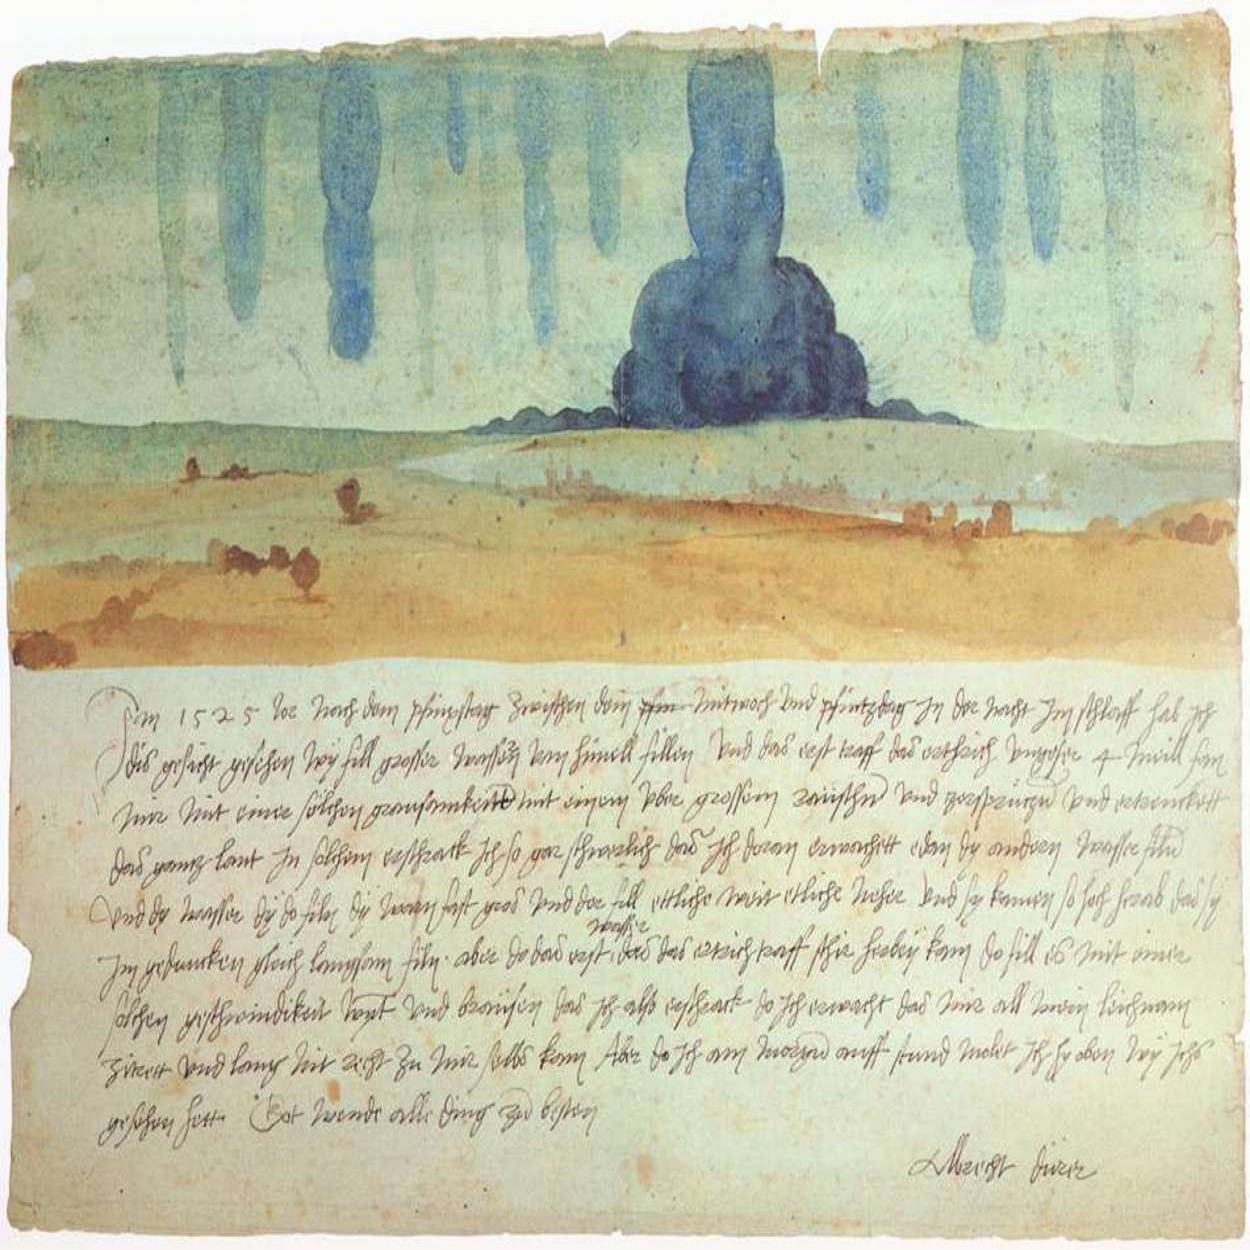 Im 1525 Jor nach dem pfinxstag zwischen dem pfin mitwoch und pfintzdag in der nacht im schlaff hab ich
dis gesicht gesehen wy fill grosser wassern vom himell fillen Und das erst traff das erthrich ungefer 4 meill fan
mir mit einer solchen grausamkeitt mit einem uber grossem raüschn und zersprützn und ertrenckett
das gannz lant In solchem erschrack ich so gar schwerlich das ich doran erwachett edan dy andern wasser filn
Und dy wasser dy do filn dy warn fast gros und der fill ettliche weit etliche neher und sy kamen so hoch herab das sy
im gedancken gleich langsam filn. aber do das erst wasser das das ertrich traff schir herbey kam do fill es mit einer
solchen geschwindikeit wynt und braüsen das ich also erschrack do ich erwacht das mir all mein leichnam
zitrett und lang nit recht zu mir selbs kam Aber do ich am morgn auff stund malet ich hy oben wy ichs
gesehen hett Got wende alle ding zu besten
Albrecht dürer